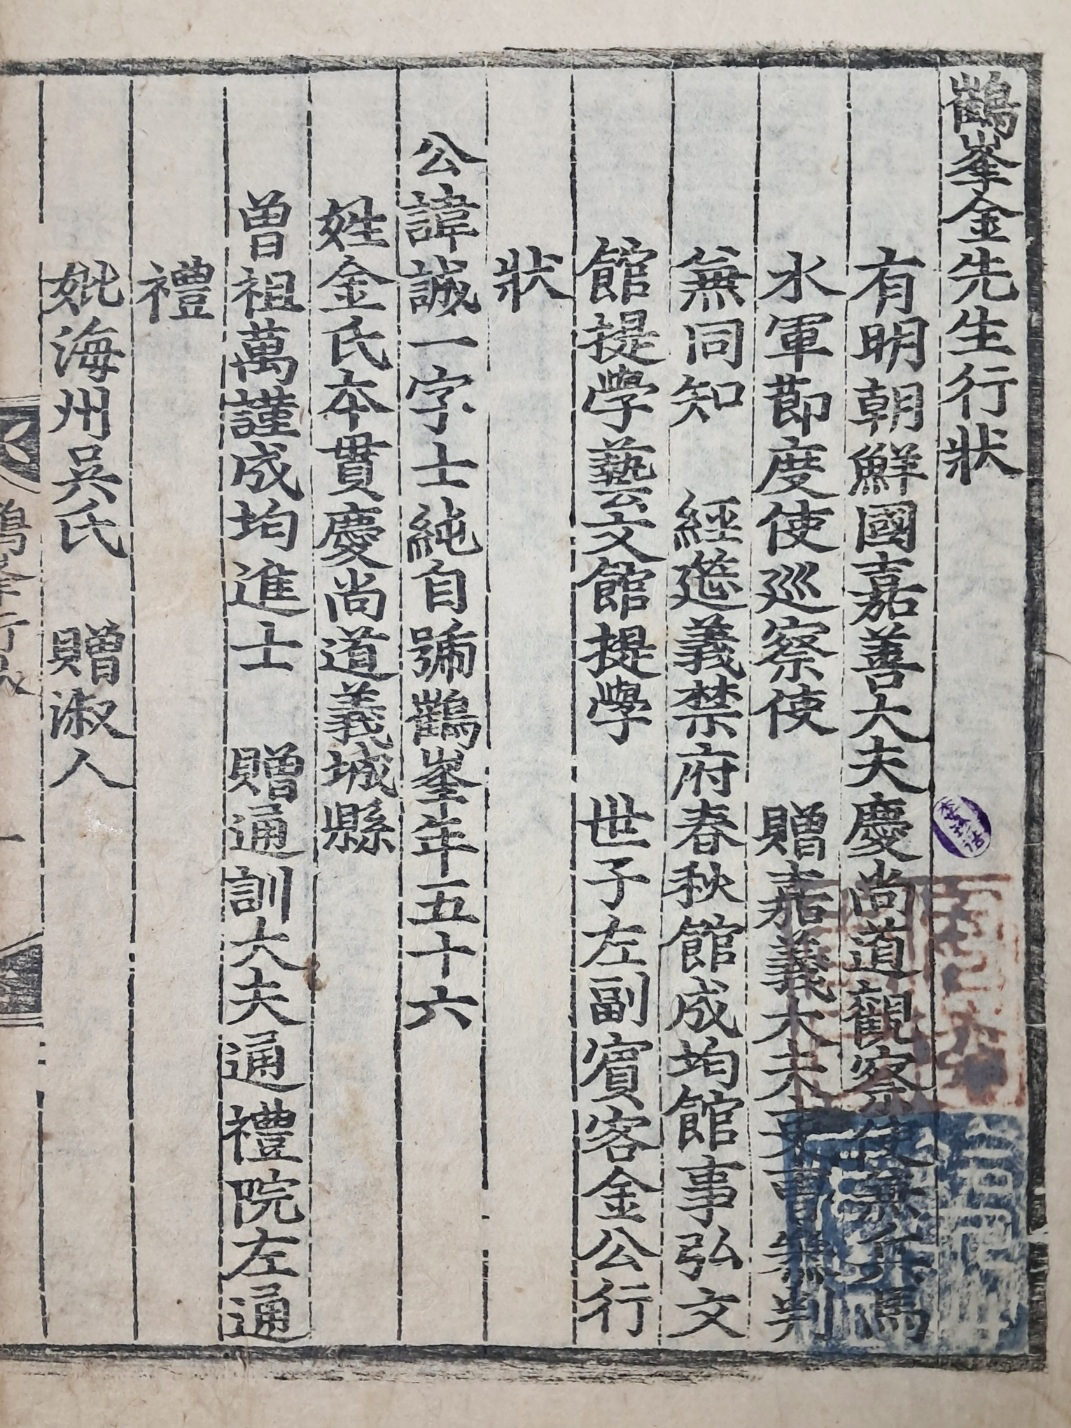 鶴峯金先生行狀
有明朝鮮國嘉善大夫慶尚道觀察使兼兵馬
水軍節度使巡察使 贈嘉義大夫吏曹參判
兼同知 經筵義禁府春秋館成均館事弘文
館提學藝文館提學 世子左副賓客金公行
狀
公諱誠一字士純自號鶴峯年五十六
姓金氏本貫慶尚道義城縣
曾祖萬謹成均進士 贈通訓大夫通禮院左通
禮
妣海州吳氏 贈淑人
鶴峯行狀 一